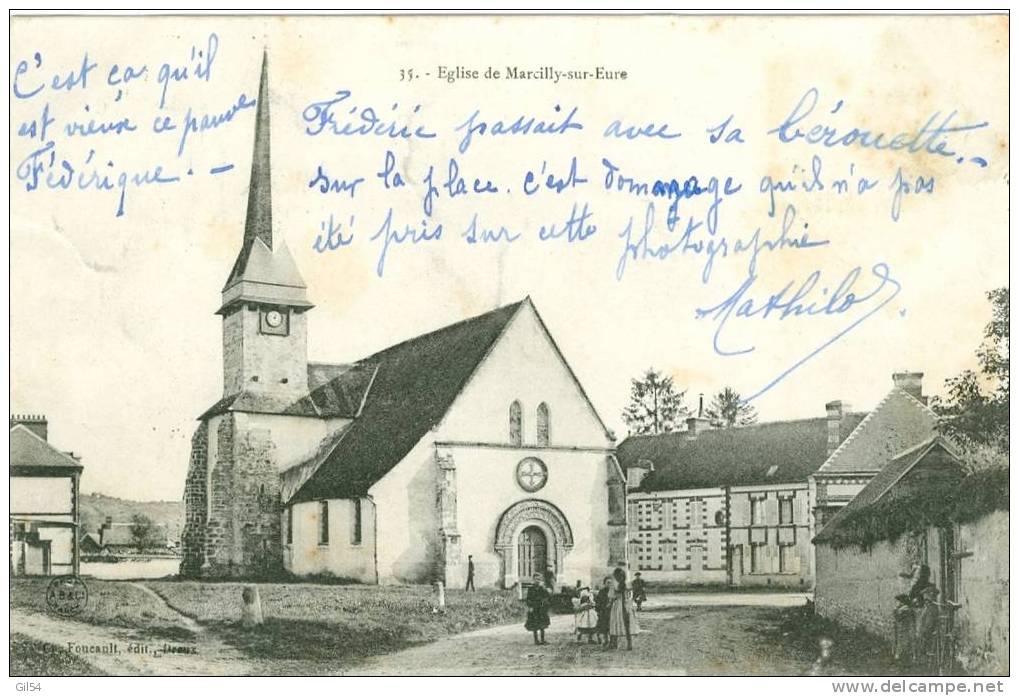 35. - Eglise de Marcilly-sur-Eure
C'est ça qu'il
est vieux ce pauvre
Fédérique. -
Frédéric passait avec sa bérouette. -
sur la place. c'est domage qu'il n'a pas
été pris sur cette photographie
Mathilde.
A.B.&C.
Ch. Foucault, édit., Dreux
Gil54
www.delcampe.net